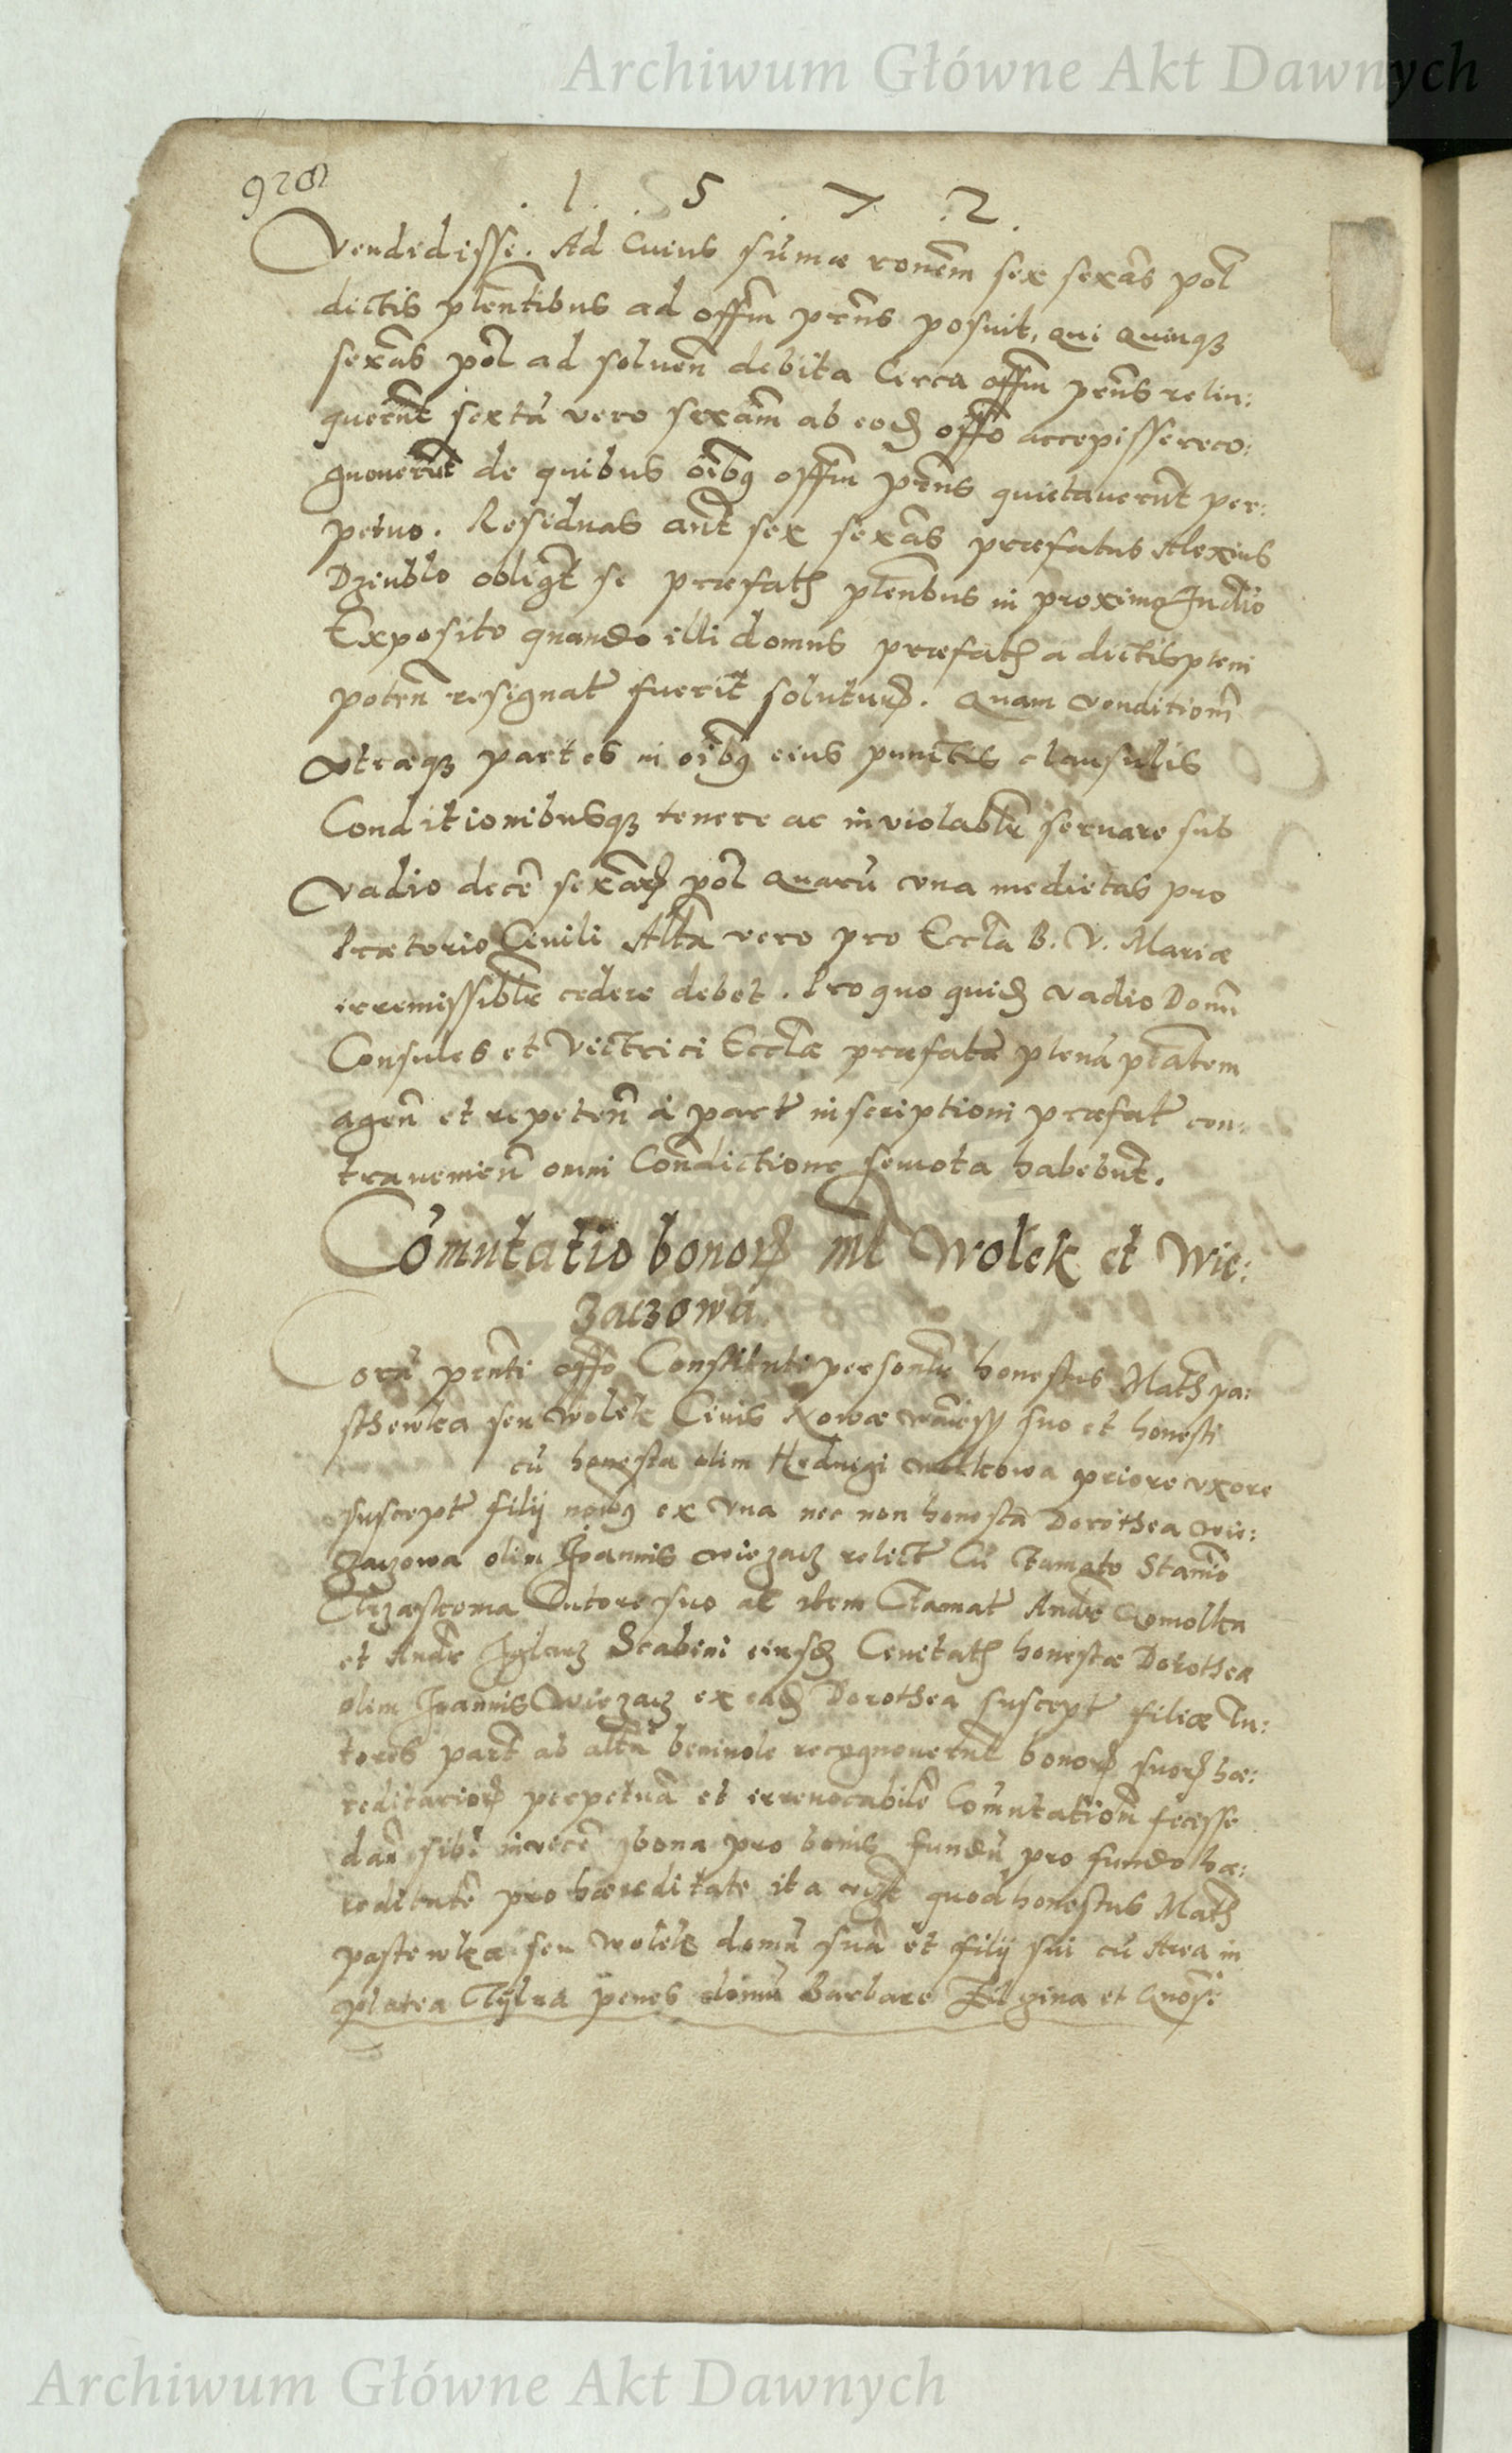 Archiwum Główne Akt Dawnych
928
. 1 . . 5 . 7 . 2 .
Vendidisse. Ad Cuius sumæ ronem sex sexās pol
dictis plentibus ad offm prns posuit, qui quinqȝ
sexās pol ad soluen debita Circa offm prns relin:
quernt sextā vero sexam ab eod offo accepisse reco:
gnouerūt de quibus oibȝ offm prns quietauerūt per:
petuo. Residuas aut sex sexās præfatus Alexius
Dziublo obligt se præfatis plenbus in proximo Judio
Exposito quando illi domus præfat a dictis pleni
poten resignat fuerit soluturȝ. Quam venditiom
vtræqȝ partes in oibȝ eius punctis clausulis
Conditionibusqȝ tenere ac inviolablr seruare sub
Vadio decē sexarȝ pol Quarū vna medietas pro
Prætorio Ciuili Altā vero pro Eccla B. V. Mariæ
irremissiblr cedere debet. Pro quo quid vadio Domi
Consules et Victrici Ecclæ præfatæ plenā ptatem
agen et repeten à parte inscriptioni præfat con:
trauenien omni Conditione semota habebūt.
Comutatio bonorȝ int Wolek et Wie:
zaczowa
Corā prnti offo Constituti personlr honestus Math pa:
sthewka seu Wolek Ciuis Nowæ suo et honesti
cū honesta olim Heduigi wolkowa priore vxore
suscept filij noibȝ ex vna nec non honesta Dorothea wie:
zaczowa olim Joannis wiezacz relict Cū
Tutore suo ac item Andr
et Andr Scabini eiusd Ciuitatȝ honestæ Dorothea
olim Joannis Wiezacz ex ead Dorothea suscept filiæ Tu:
tores part ab altā beniuole recognouerūt bonorȝ suorȝ hæ:
reditariorȝ perpetuā et irreuocabilē Comutatiom fecisse
dan sibi inuicē bona pro bonis fundū pro fundo hæ:
reditatē pro hæreditate ita quod honestus Math
pastewka seu Wolek domū suā et filij sui cū Area in
platea penes domū Barbare et
Archiwum Główne Akt Dawnych